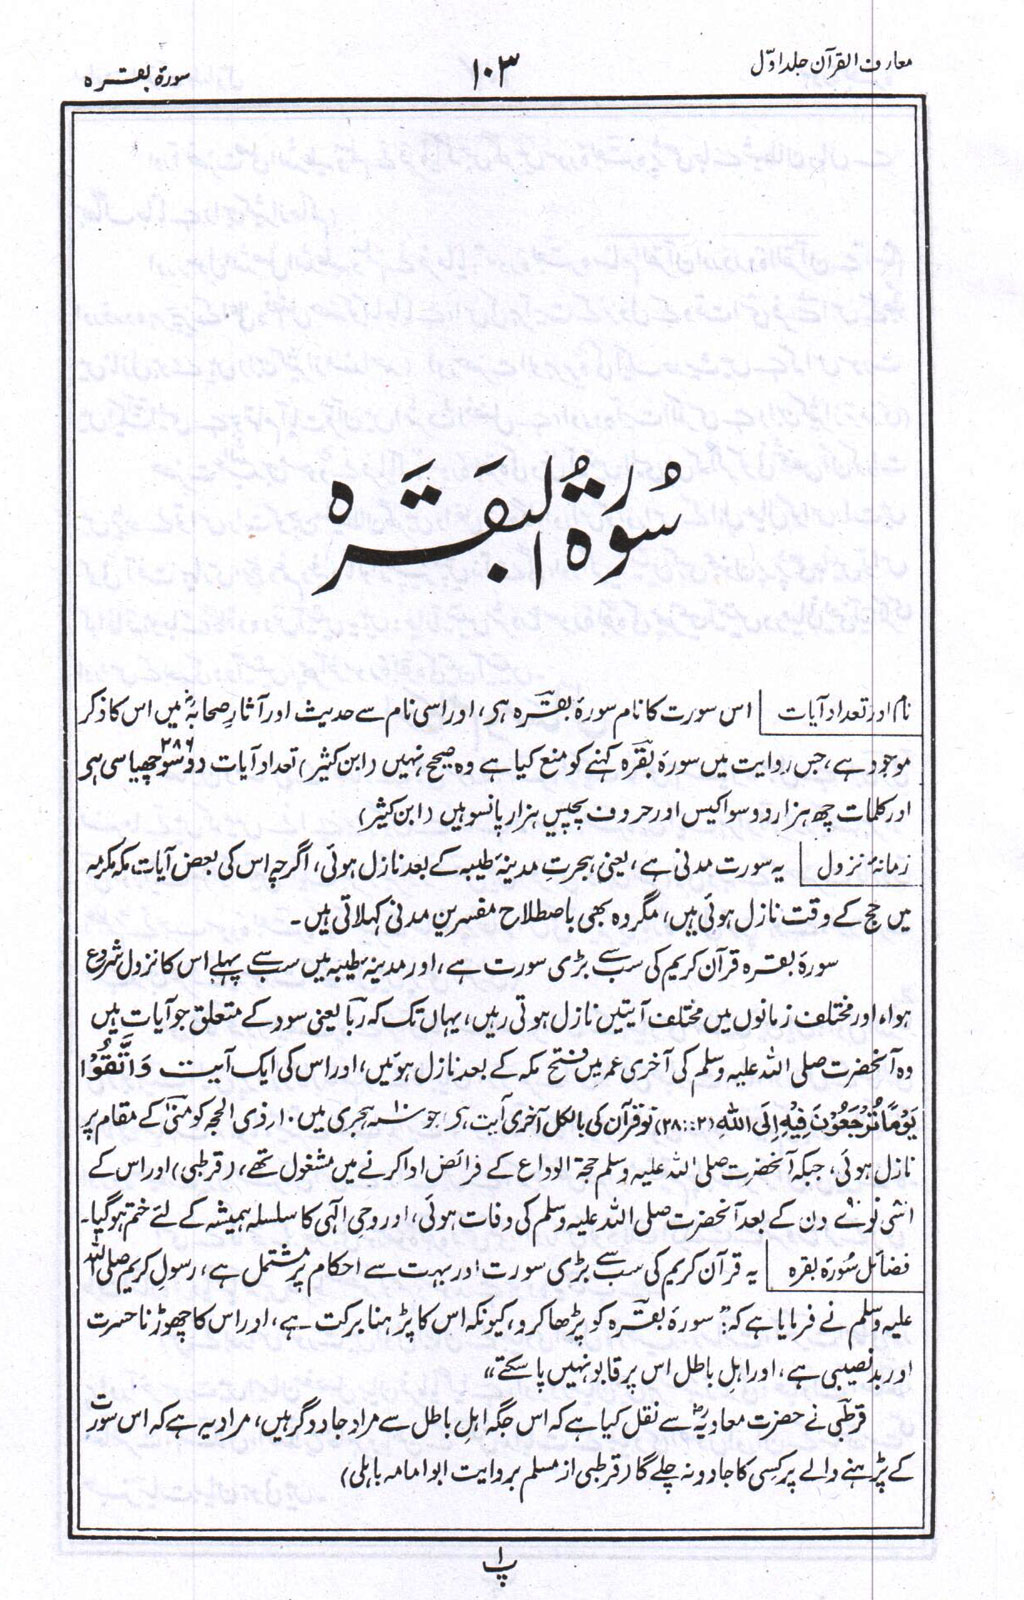 معارف القرآن جلد اوّل
۱۰۳
سورۂ بقرہ
سُورَۃُ البَقَرَہ
نام اور تعداد آیات اس سورت کا نام سورۂ بقرہ ہے، اور اسی نام سے حدیث اور آثارِ صحابہؓ میں اس کا ذکر
موجود ہے، جس روایت میں سورۂ بقرہ کہنے کو منع کیا ہے وہ صحیح نہیں (ابن کثیر) تعداد آیات دو سو چھیاسی ۲۸۶ ہے
اور کلمات چھ ہزار دو سو اکیس اور حروف پچیس ہزار پانسو ہیں (ابن کثیر)
زمانۂ نزول یہ سورت مدنی ہے، یعنی ہجرتِ مدینہ طیبہ کے بعد نازل ہوئی، اگرچہ اس کی بعض آیات مکہ مکرمہ
میں حج کے وقت نازل ہوئی ہیں، مگر وہ بھی باصطلاح مفسرین مدنی کہلاتی ہیں۔
سورۂ بقرہ قرآن کریم کی سب سے بڑی سورت ہے، اور مدینہ طیبہ میں سب سے پہلے اس کا نزول شروع
ہوا، اور مختلف زمانوں میں مختلف آیتیں نازل ہوتی رہیں، یہاں تک کہ ربا یعنی سود کے متعلق جو آیات ہیں
وہ آنحضرت صلی اللہ علیہ وسلم کی آخری عمر میں فتح مکہ کے بعد نازل ہوئیں، اور اس کی ایک آیت وَاتَّقُوْا
يَوْمًا تُرْجَعُوْنَ فِيْهِ اِلَى اللّٰهِ (۲:۲۸۰) تو قرآن کی بالکل آخری آیت ہے، جو ۱۰ سنہ ہجری میں ۱۰ ذی الحجہ کو منیٰ کے مقام پر
نازل ہوئی، جبکہ آنحضرت صلی اللہ علیہ وسلم حجۃ الوداع کے فرائض ادا کرنے میں مشغول تھے، (قرطبی) اور اس کے
اسّی نوّے دن کے بعد آنحضرت صلی اللہ علیہ وسلم کی وفات ہوئی، اور وحیِ الٰہی کا سلسلہ ہمیشہ کے لئے ختم ہوگیا۔
فضائل سُورۂ بقرہ یہ قرآن کریم کی سب سے بڑی سورت اور بہت سے احکام پر مشتمل ہے، رسولِ کریم صلی اللہ
علیہ وسلم نے فرمایا ہے کہ: ”سورۂ بقرہ کو پڑھا کرو، کیونکہ اس کا پڑھنا برکت ہے، اور اس کا چھوڑنا حسرت
اور بدنصیبی ہے، اور اہلِ باطل اس پر قابو نہیں پا سکتے“
قرطبی نے حضرت معاویہؓ سے نقل کیا ہے کہ اس جگہ اہلِ باطل سے مراد جادوگر ہیں، مراد یہ ہے کہ اس سورت
کے پڑھنے والے پر کسی کا جادو نہ چلے گا (قرطبی از مسلم بروایت ابو امامہ باہلی)
پ۱